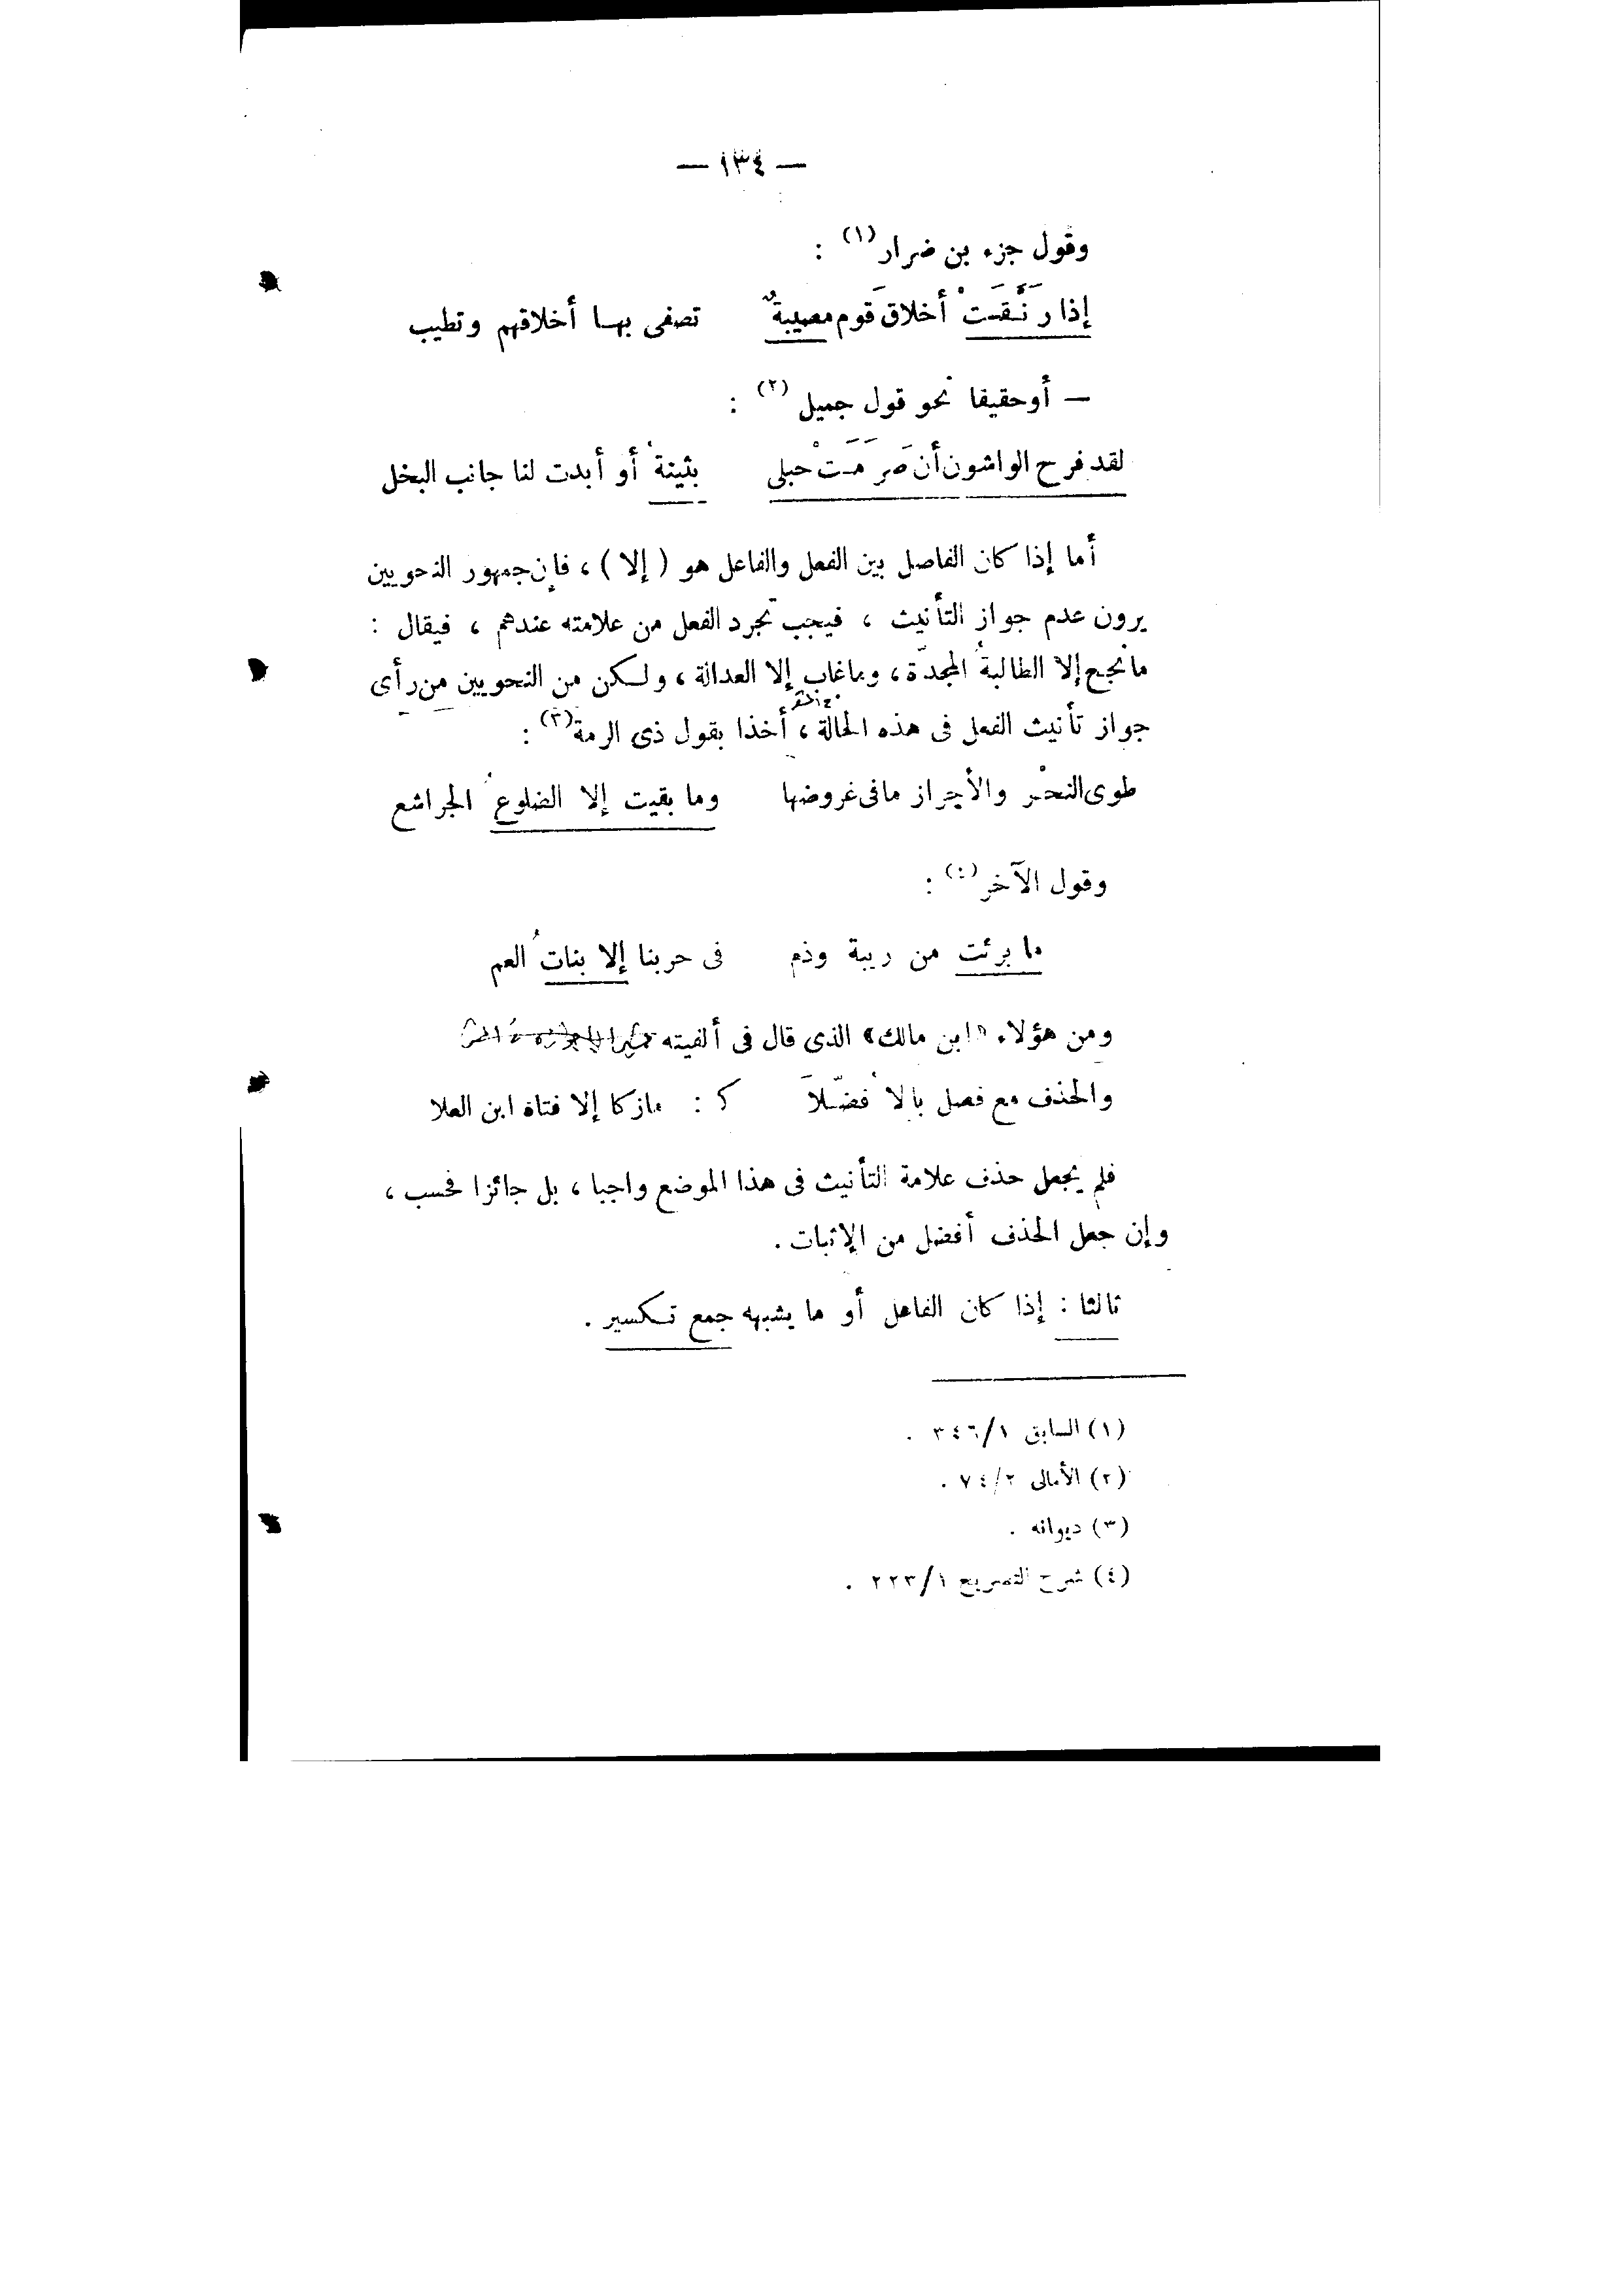 — ١٣٤ —
وقول جزء بن ضرار (١) :
إذا رَنَّقَتْ أخلاقَ قوم مصيبةٌ تصفى بها أخلاقهم وتطيب
— أوحقيقا نحو قول جميل (٢) :
لقد فرح الواشون أن صَرَمَتْ حبلى بثينةُ أو أبدت لنا جانب البخل
أما إذا كان الفاصل بين الفعل والفاعل هو ( إلا ) ، فإن جمهور النحويين
يرون عدم جواز التأنيث ، فيجب تجرد الفعل من علامته عندهم ، فيقال :
ما نجح إلا الطالبةُ المجدّة ، وماغاب إلا العدالة ، ولكن من النحويين من رأى
جواز تأنيث الفعل فى هذه الحالة ، أخذا بقول ذى الرمة (٣) :
طوى النحْز والأجراز مافى غروضها وما بقيت إلا الضلوعُ الجراشع
وقول الآخر (٤) :
ما برئت من ريبة وذم فى حربنا إلا بناتُ العم
ومن هؤلاء «ابن مالك» الذى قال فى ألفيته
والحذف مع فصل بإلا فضّلاَ ك : مازكا إلا فتاة ابن العلا
فلم يجعل حذف علامة التأنيث فى هذا الموضع واجبا ، بل جائزا فحسب ،
وإن جعل الحذف أفضل من الإثبات .
ثالثا : إذا كان الفاعل أو ما يشبهه جمع تكسير .
(١) السابق ٣٤٦/١ .
(٢) الأمالى ٧٤/٢ .
(٣) ديوانه .
(٤) شرح التصريح ٢٢٣/١ .